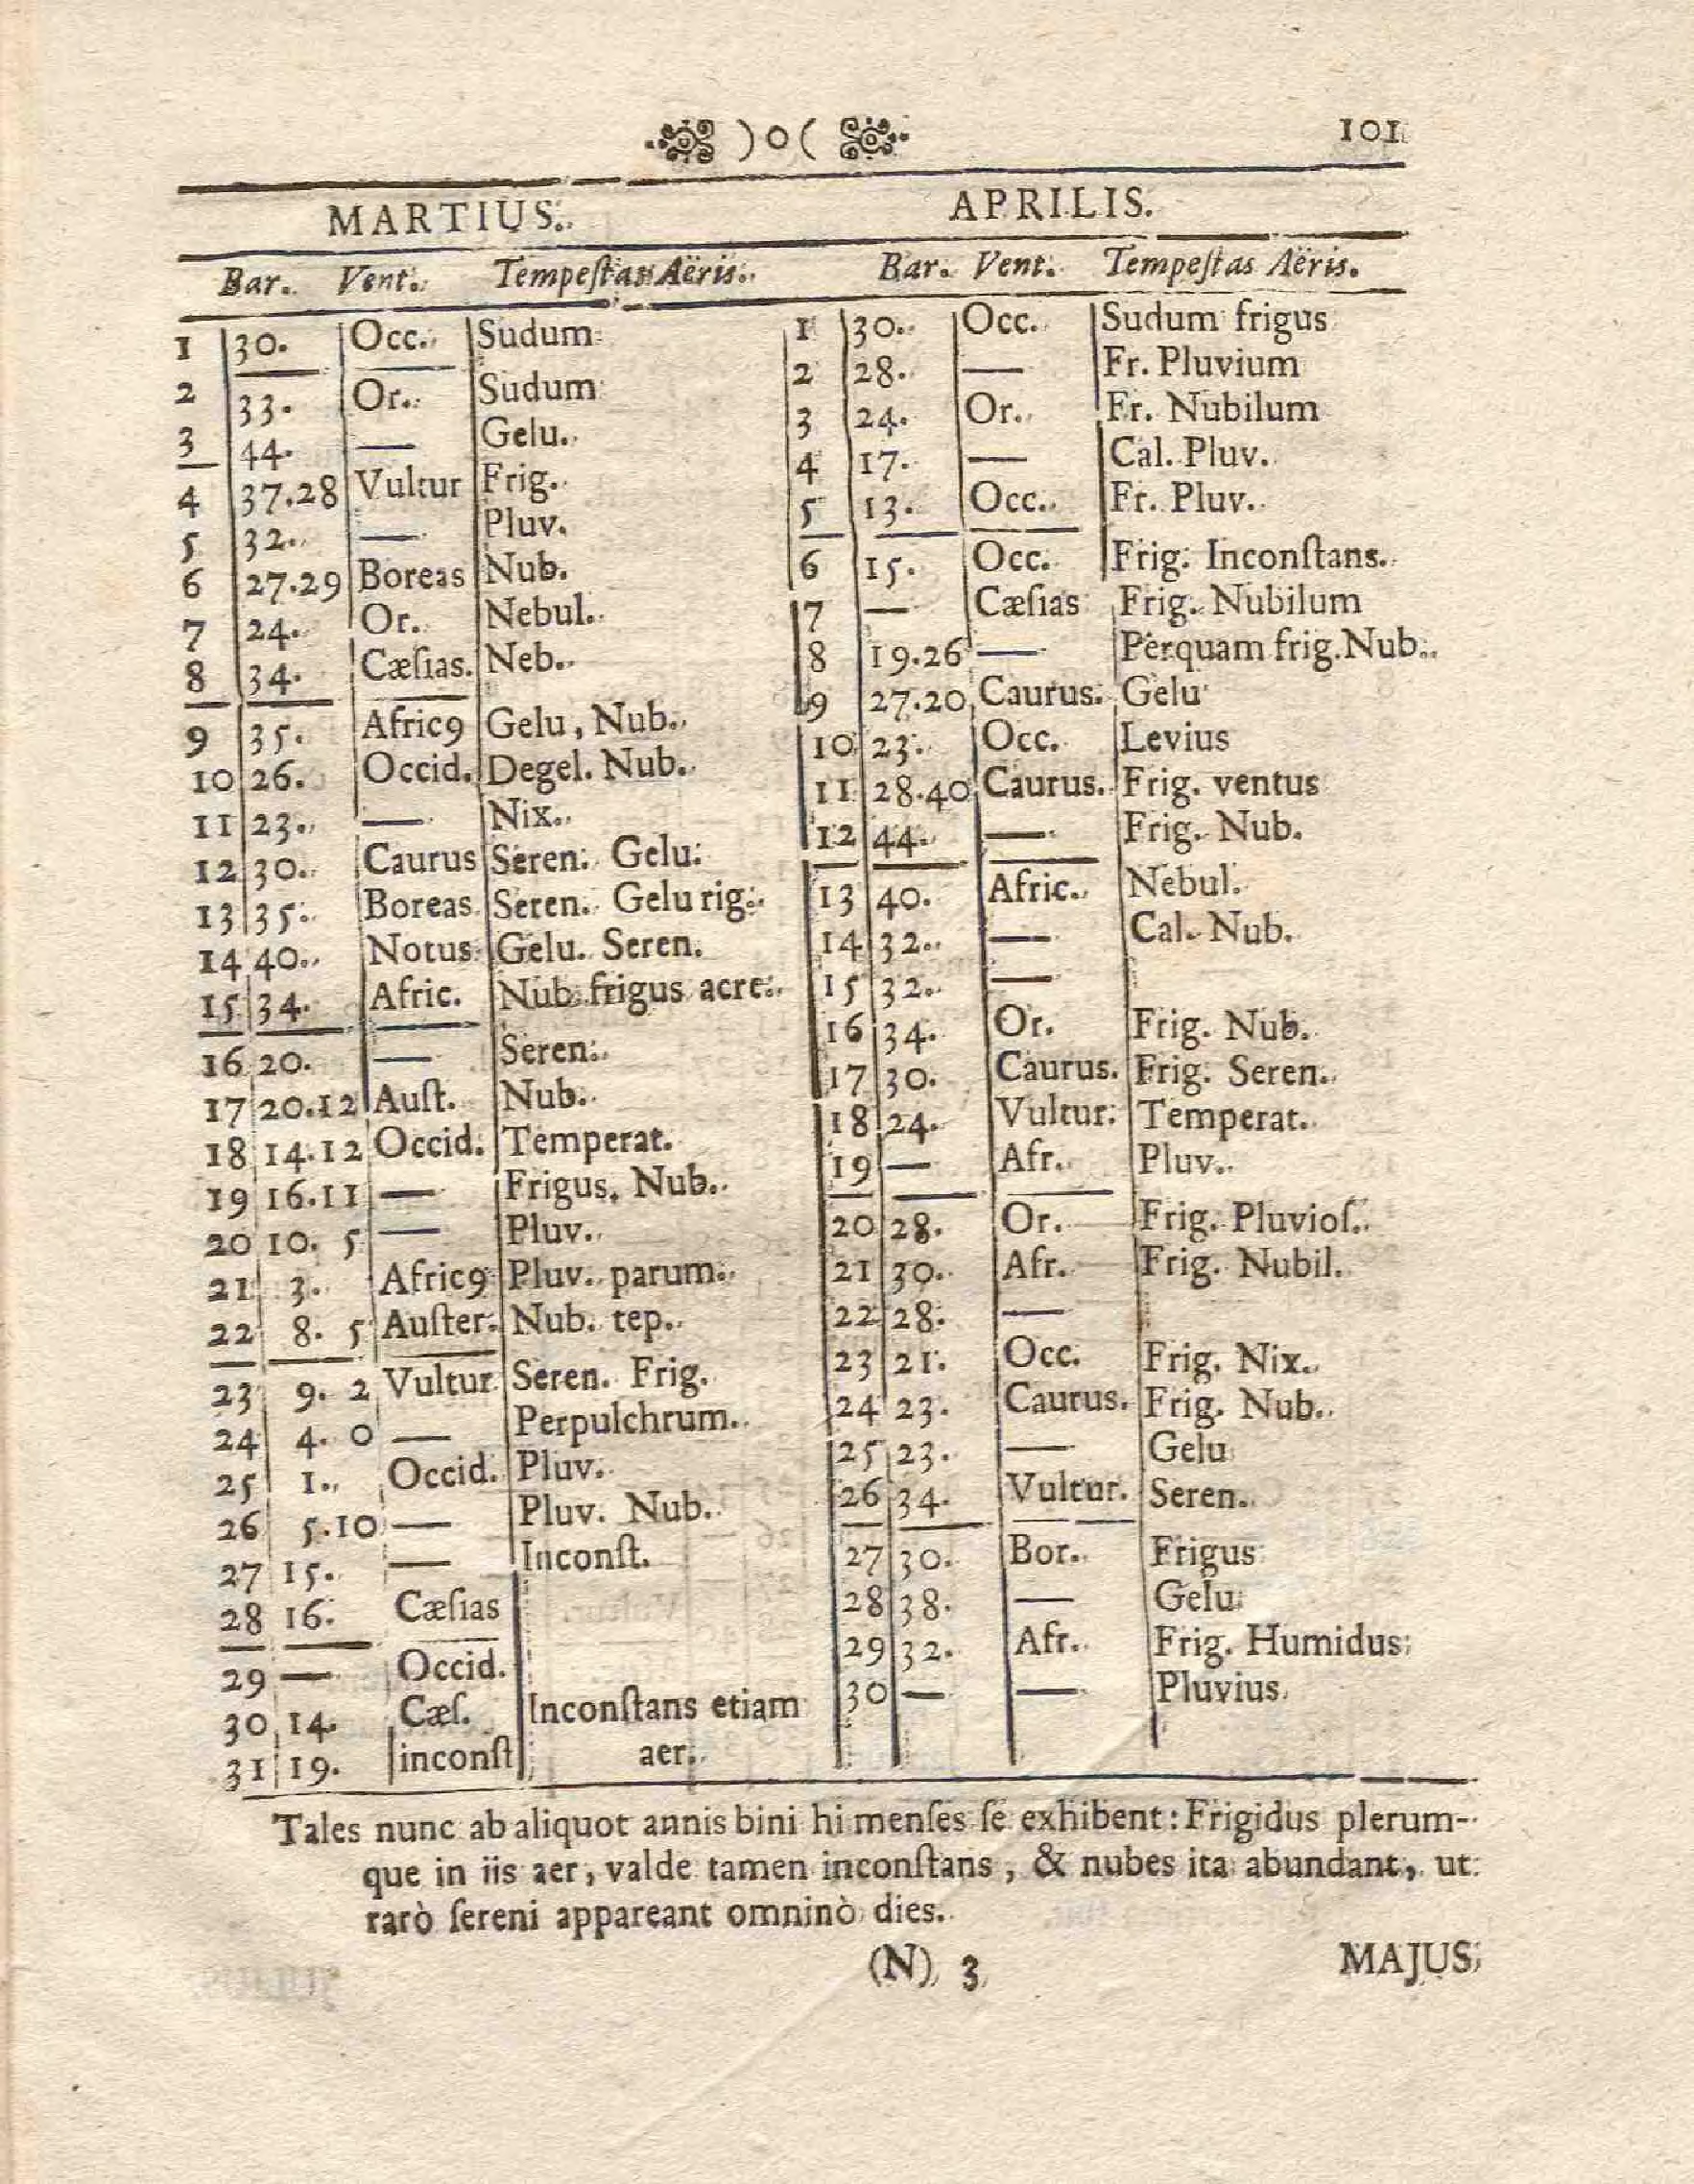 )o( 101
MARTIUS.
Bar. Vent. Tempeſtas Aëris.
1 30. Occ. Sudum
2 33. Or. Sudum
3 44. — Gelu.
4 37.28 Vultur Frig.
5 32. — Pluv.
6 27.29 Boreas Nub.
7 24. Or. Nebul.
8 34. Cæſias. Neb.
9 35. Afric9 Gelu, Nub.
10 26. Occid. Degel. Nub.
11 23. — Nix.
12 30. Caurus Seren. Gelu.
13 35. Boreas Seren. Gelu rig.
14 40. Notus Gelu. Seren.
15 34. Afric. Nub. frigus acre.
16 20. — Seren.
17 20.12 Auſt. Nub.
18 14.12 Occid. Temperat.
19 16.11 — Frigus. Nub.
20 10. 5 — Pluv.
21 3. Afric9 Pluv. parum.
22 8. 5 Auſter. Nub. tep.
23 9. 2 Vultur Seren. Frig.
24 4. 0 — Perpulchrum.
25 1. Occid. Pluv.
26 5.10 — Pluv. Nub.
27 15. — Inconſt.
28 16. Cæſias
29 — Occid.
30 14. Cæſ. Inconſtans etiam
31 19. inconſt aer.
APRILIS.
Bar. Vent. Tempeſtas Aëris.
1 30. Occ. Sudum frigus
2 28. — Fr. Pluvium
3 24. Or. Fr. Nubilum
4 17. — Cal. Pluv.
5 13. Occ. Fr. Pluv.
6 15. Occ. Frig. Inconſtans.
7 — Cæſias Frig. Nubilum
8 19.26 — Perquam frig. Nub.
9 27.20 Caurus. Gelu
10 23. Occ. Levius
11 28.40 Caurus. Frig. ventus
12 44. — Frig. Nub.
13 40. Afric. Nebul.
14 32. — Cal. Nub.
15 32. —
16 34. Or. Frig. Nub.
17 30. Caurus. Frig. Seren.
18 24. Vultur. Temperat.
19 — Afr. Pluv.
20 28. Or. Frig. Pluvioſ.
21 30. Afr. Frig. Nubil.
22 28. —
23 21. Occ. Frig. Nix.
24 23. Caurus. Frig. Nub.
25 23. — Gelu
26 34. Vultur. Seren.
27 30. Bor. Frigus
28 38. — Gelu
29 32. Afr. Frig. Humidus
30 — — Pluvius
Tales nunc ab aliquot annis bini hi menſes ſe exhibent: Frigidus plerum-
que in iis aer, valde tamen inconſtans, & nubes ita abundant, ut
rarò ſereni appareant omninò dies.
(N) 3 MAJUS